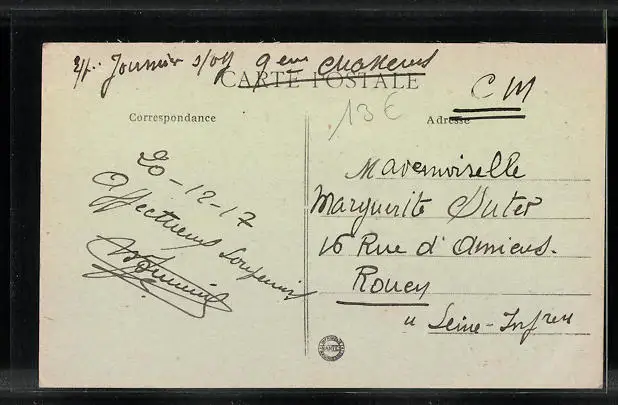 Journier s/off 9em Chasseurs
CARTE POSTALE
C M
13€
Correspondance
Adresse
20-12-17
Affectueux Souvenirs
Mademoiselle
Marguerite Suter
16 Rue d'Amiens.
Rouen
" Seine-Infre